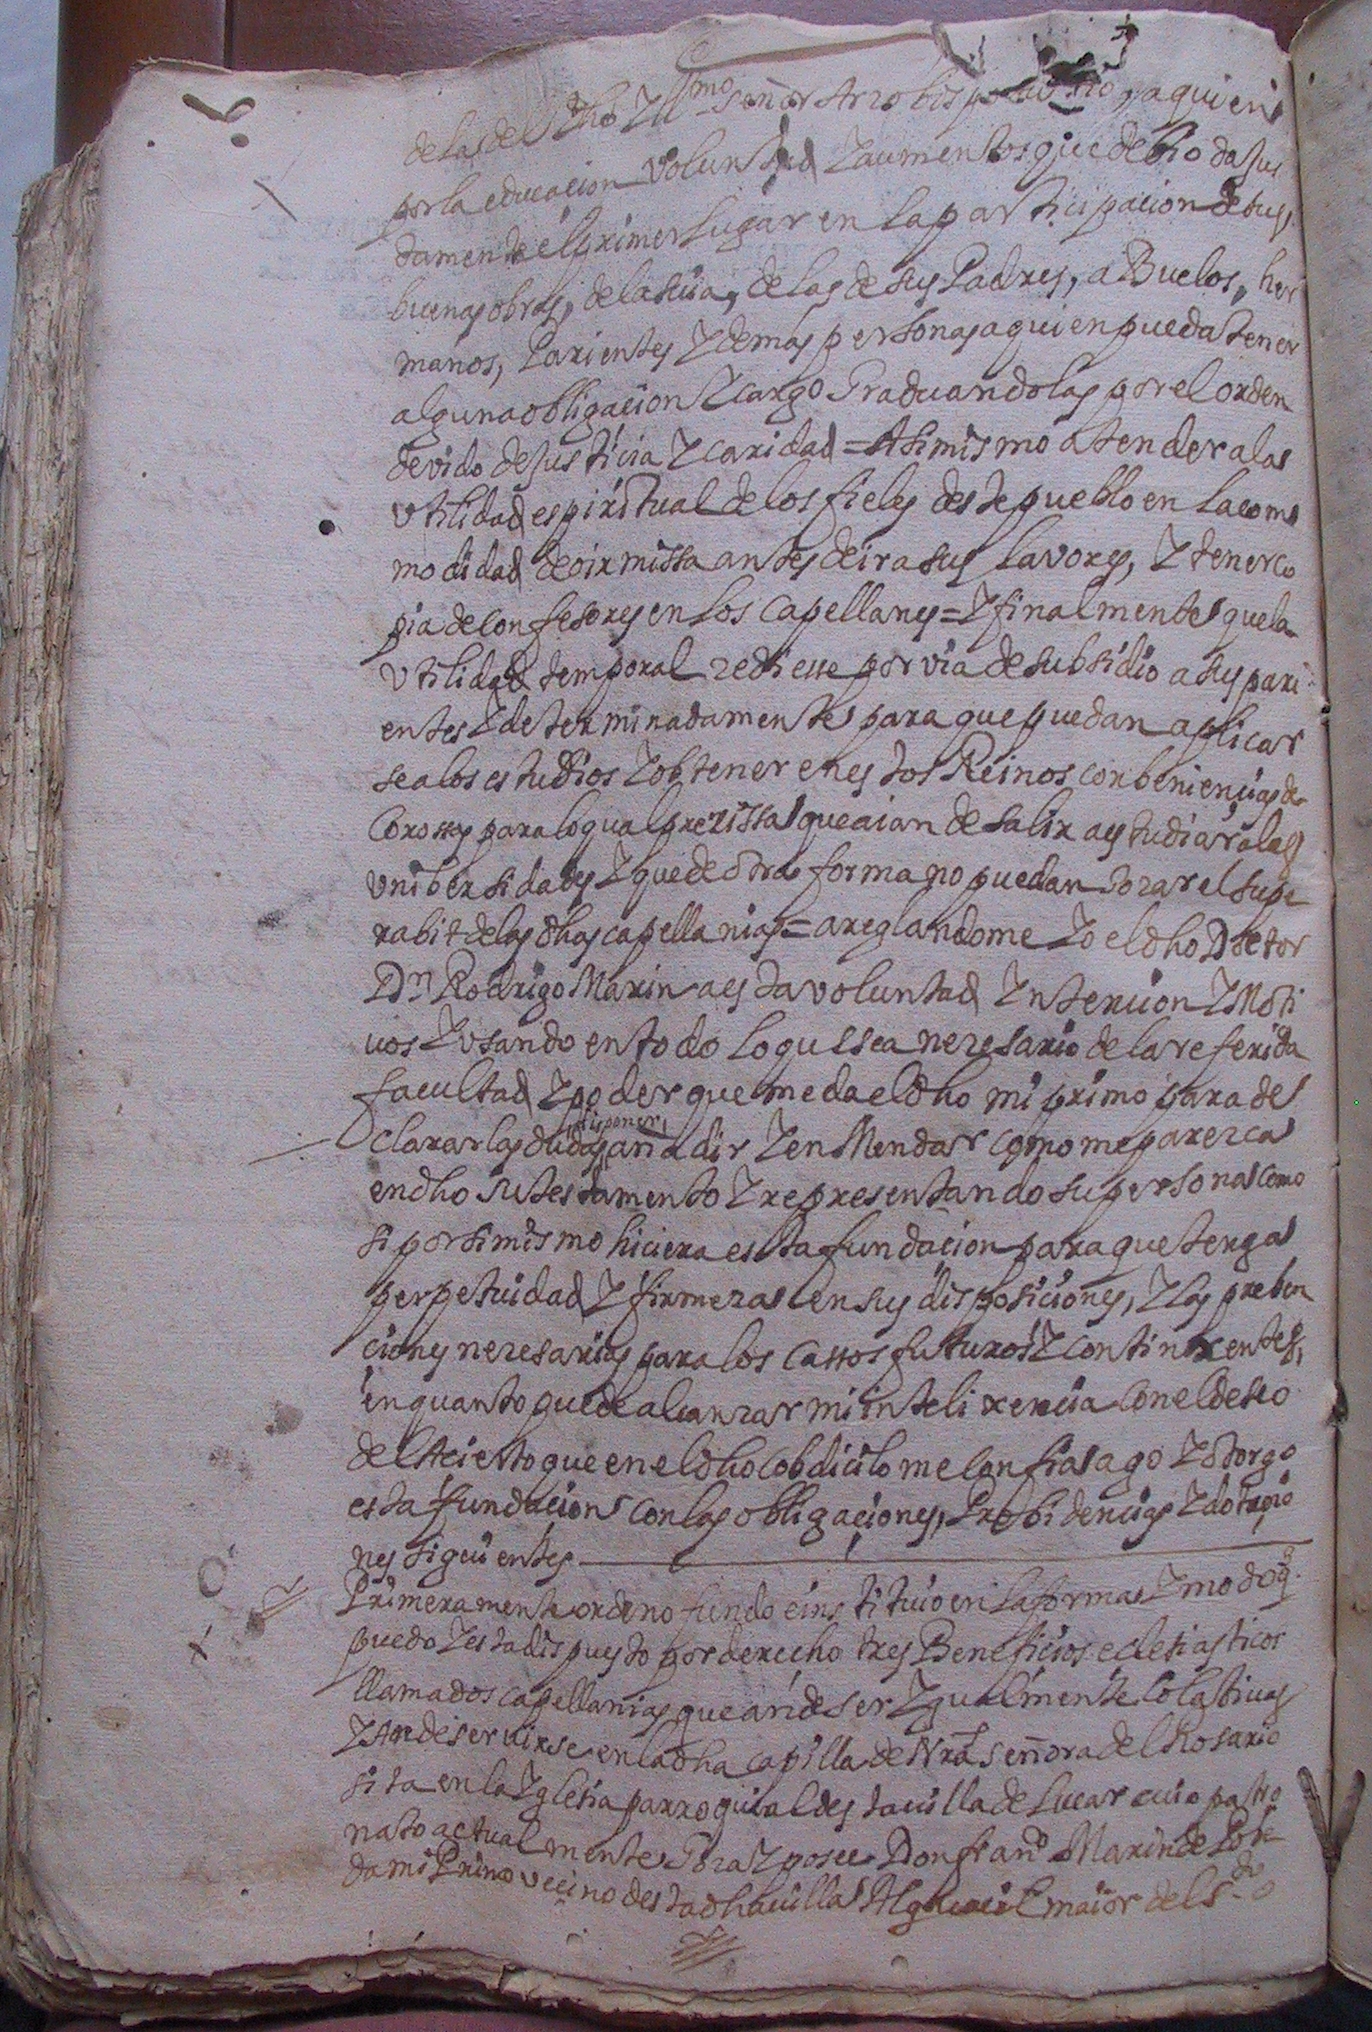 de las del dho Yllmo señor Arzobispo a quien
por la educacion voluntad Y aumentos que debio da Jus
tamente el primer Lugar en la participacion de sus
buenas obras, de la suia, de las de sus Padres, aBuelos, her
manos, Parientes Y demas personas a quien pueda tener
alguna obligacion Y cargo Graduandolas por el orden
devido de Justicia Y caridad = Asimismo atender a las
vtilidad espiritual de los fieles deste pueblo en la como
modidad de oir missa antes de ir a sus lavores, Y tener co
pia de confesores en los capellanes = Y finalmente que la
vtilidad temporal zediesse por via de subsidio a sus pari
entes Y determinadamente para que puedan aplicar
se a los estudios Y obtener en estos Reinos conbeniencias de
Corostes para lo qual prezissa que aian de salir a estudiar a las
vnibersidades Y que de otra forma no puedan Gozar el supe
rabit de las dhas capellanias = areglandome Yo el dho Doctor
Dn Rodrigo Marin a esta voluntad Yntencion Y Moti
uos Y vsando en todo lo que sea nezesario de la referida
facultad Y poder que me da el dho mi primo para de
clarar las dudas disponer, añadir Y enMendar como me parezca
en dho su testamento Y representando su persona como
si por si mismo hiciera esta fundacion para que tenga
perpetuidad Y firmeza en sus disposiciones, Y las preben
ciones nezesarias para los cassos futuros Y continxentes,
en quanto puede alcanzar mi intelixencia con el deseo
del Acierto que en el dho cobdicilo me confia ago Y otorgo
esta fundacion con las obligaciones, Probidencias Y dotacio
nes siguientes
Primeramente ordeno fundo e instituio en la forma Y modo q
puedo Y esta dispuesto por derecho tres Beneficios eclesiasticos
llamados capellanias que an de ser Ygualmente colatiuas
Y An de seruirse en la dha capilla de Nra Señora del Rosario
sita en la Yglesia parroquial desta uilla de Lucar cuio patro
nato actualmente Goza Y posee Don franco Marin de Pobe
da mi Primo vecino desta dha uilla Alguacil maior del sto